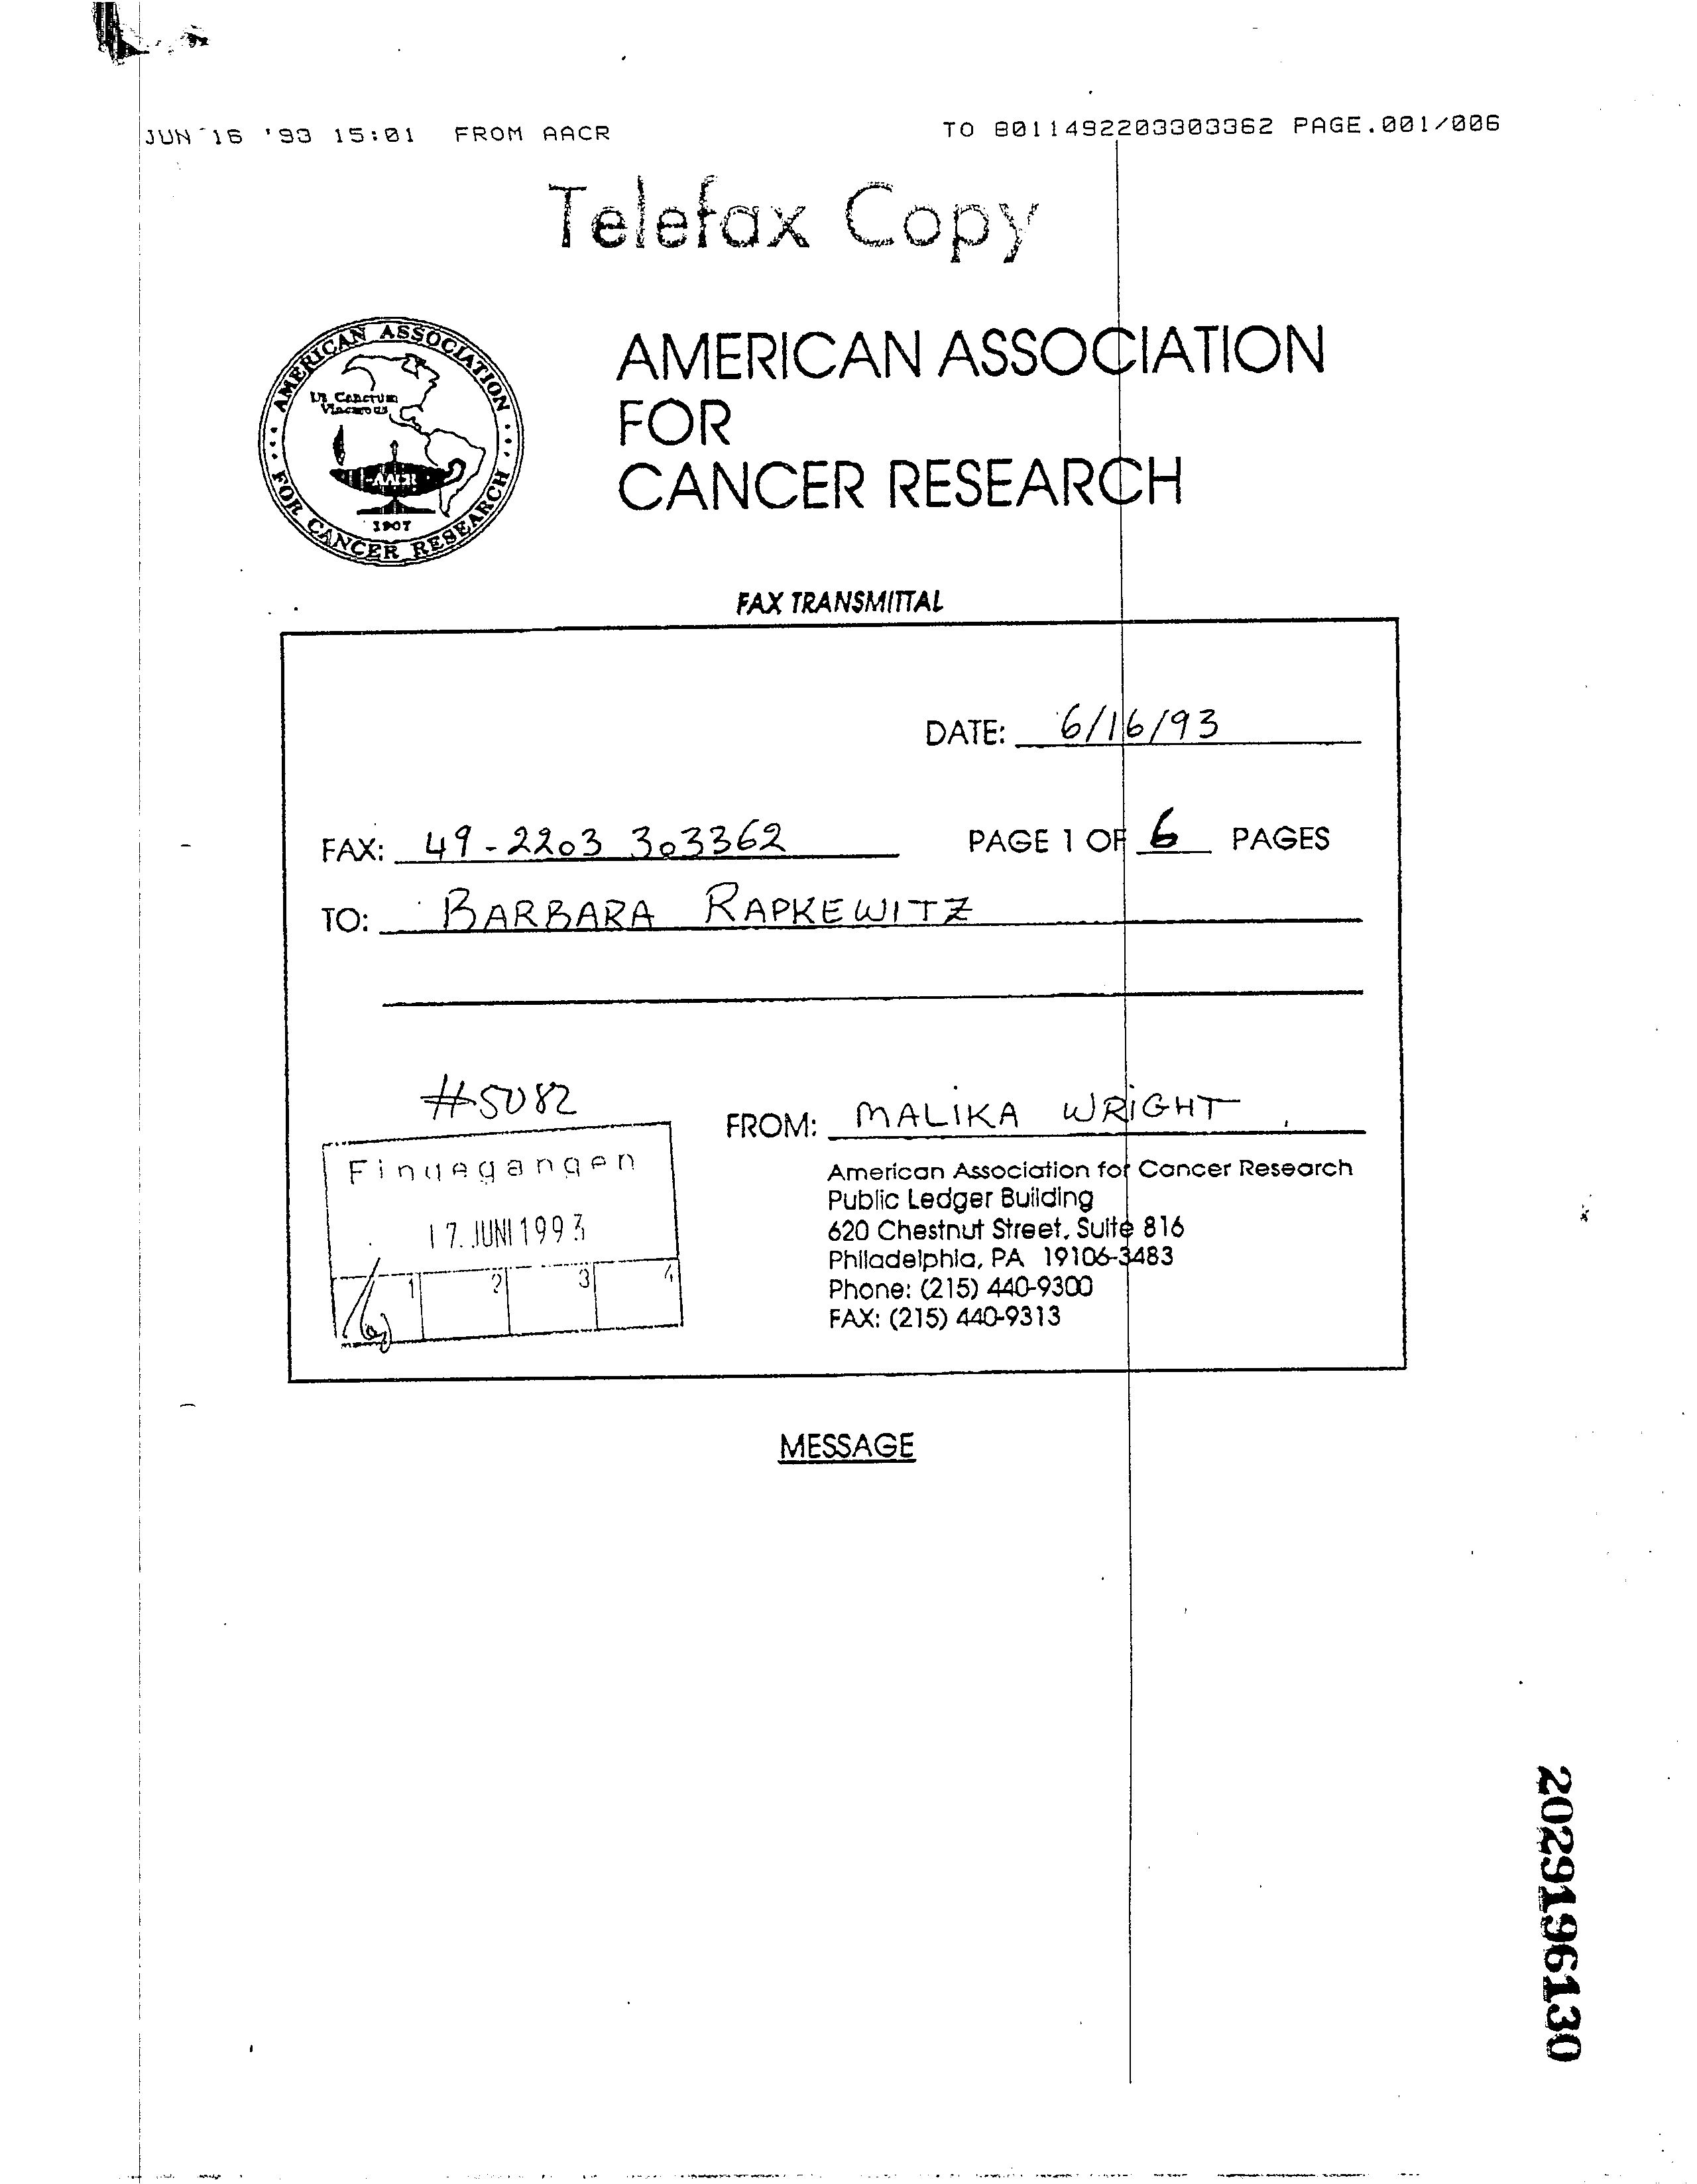 JUN 16 '93 15:01 FROM AACR TO 8011492203303362 PAGE.001/006
Telefax Copy
AMERICAN ASSOCIATION
FOR CANCER RESEARCH
Vincamus
AACR
1907
AMERICAN ASSOCIATION
FOR
CANCER RESEARCH
FAX TRANSMITTAL
DATE: 6/16/93
FAX: 49-2203 303362 PAGE 1 OF 6 PAGES
TO: BARBARA RAPKEWITZ
#5082
FROM: MALIKA WRIGHT
Eingegangen
17. JUNI 1993
1 2 3 4
American Association for Cancer Research
Public Ledger Building
620 Chestnut Street, Suite 816
Philadelphia, PA 19106-3483
Phone: (215) 440-9300
FAX: (215) 440-9313
MESSAGE
2029196130